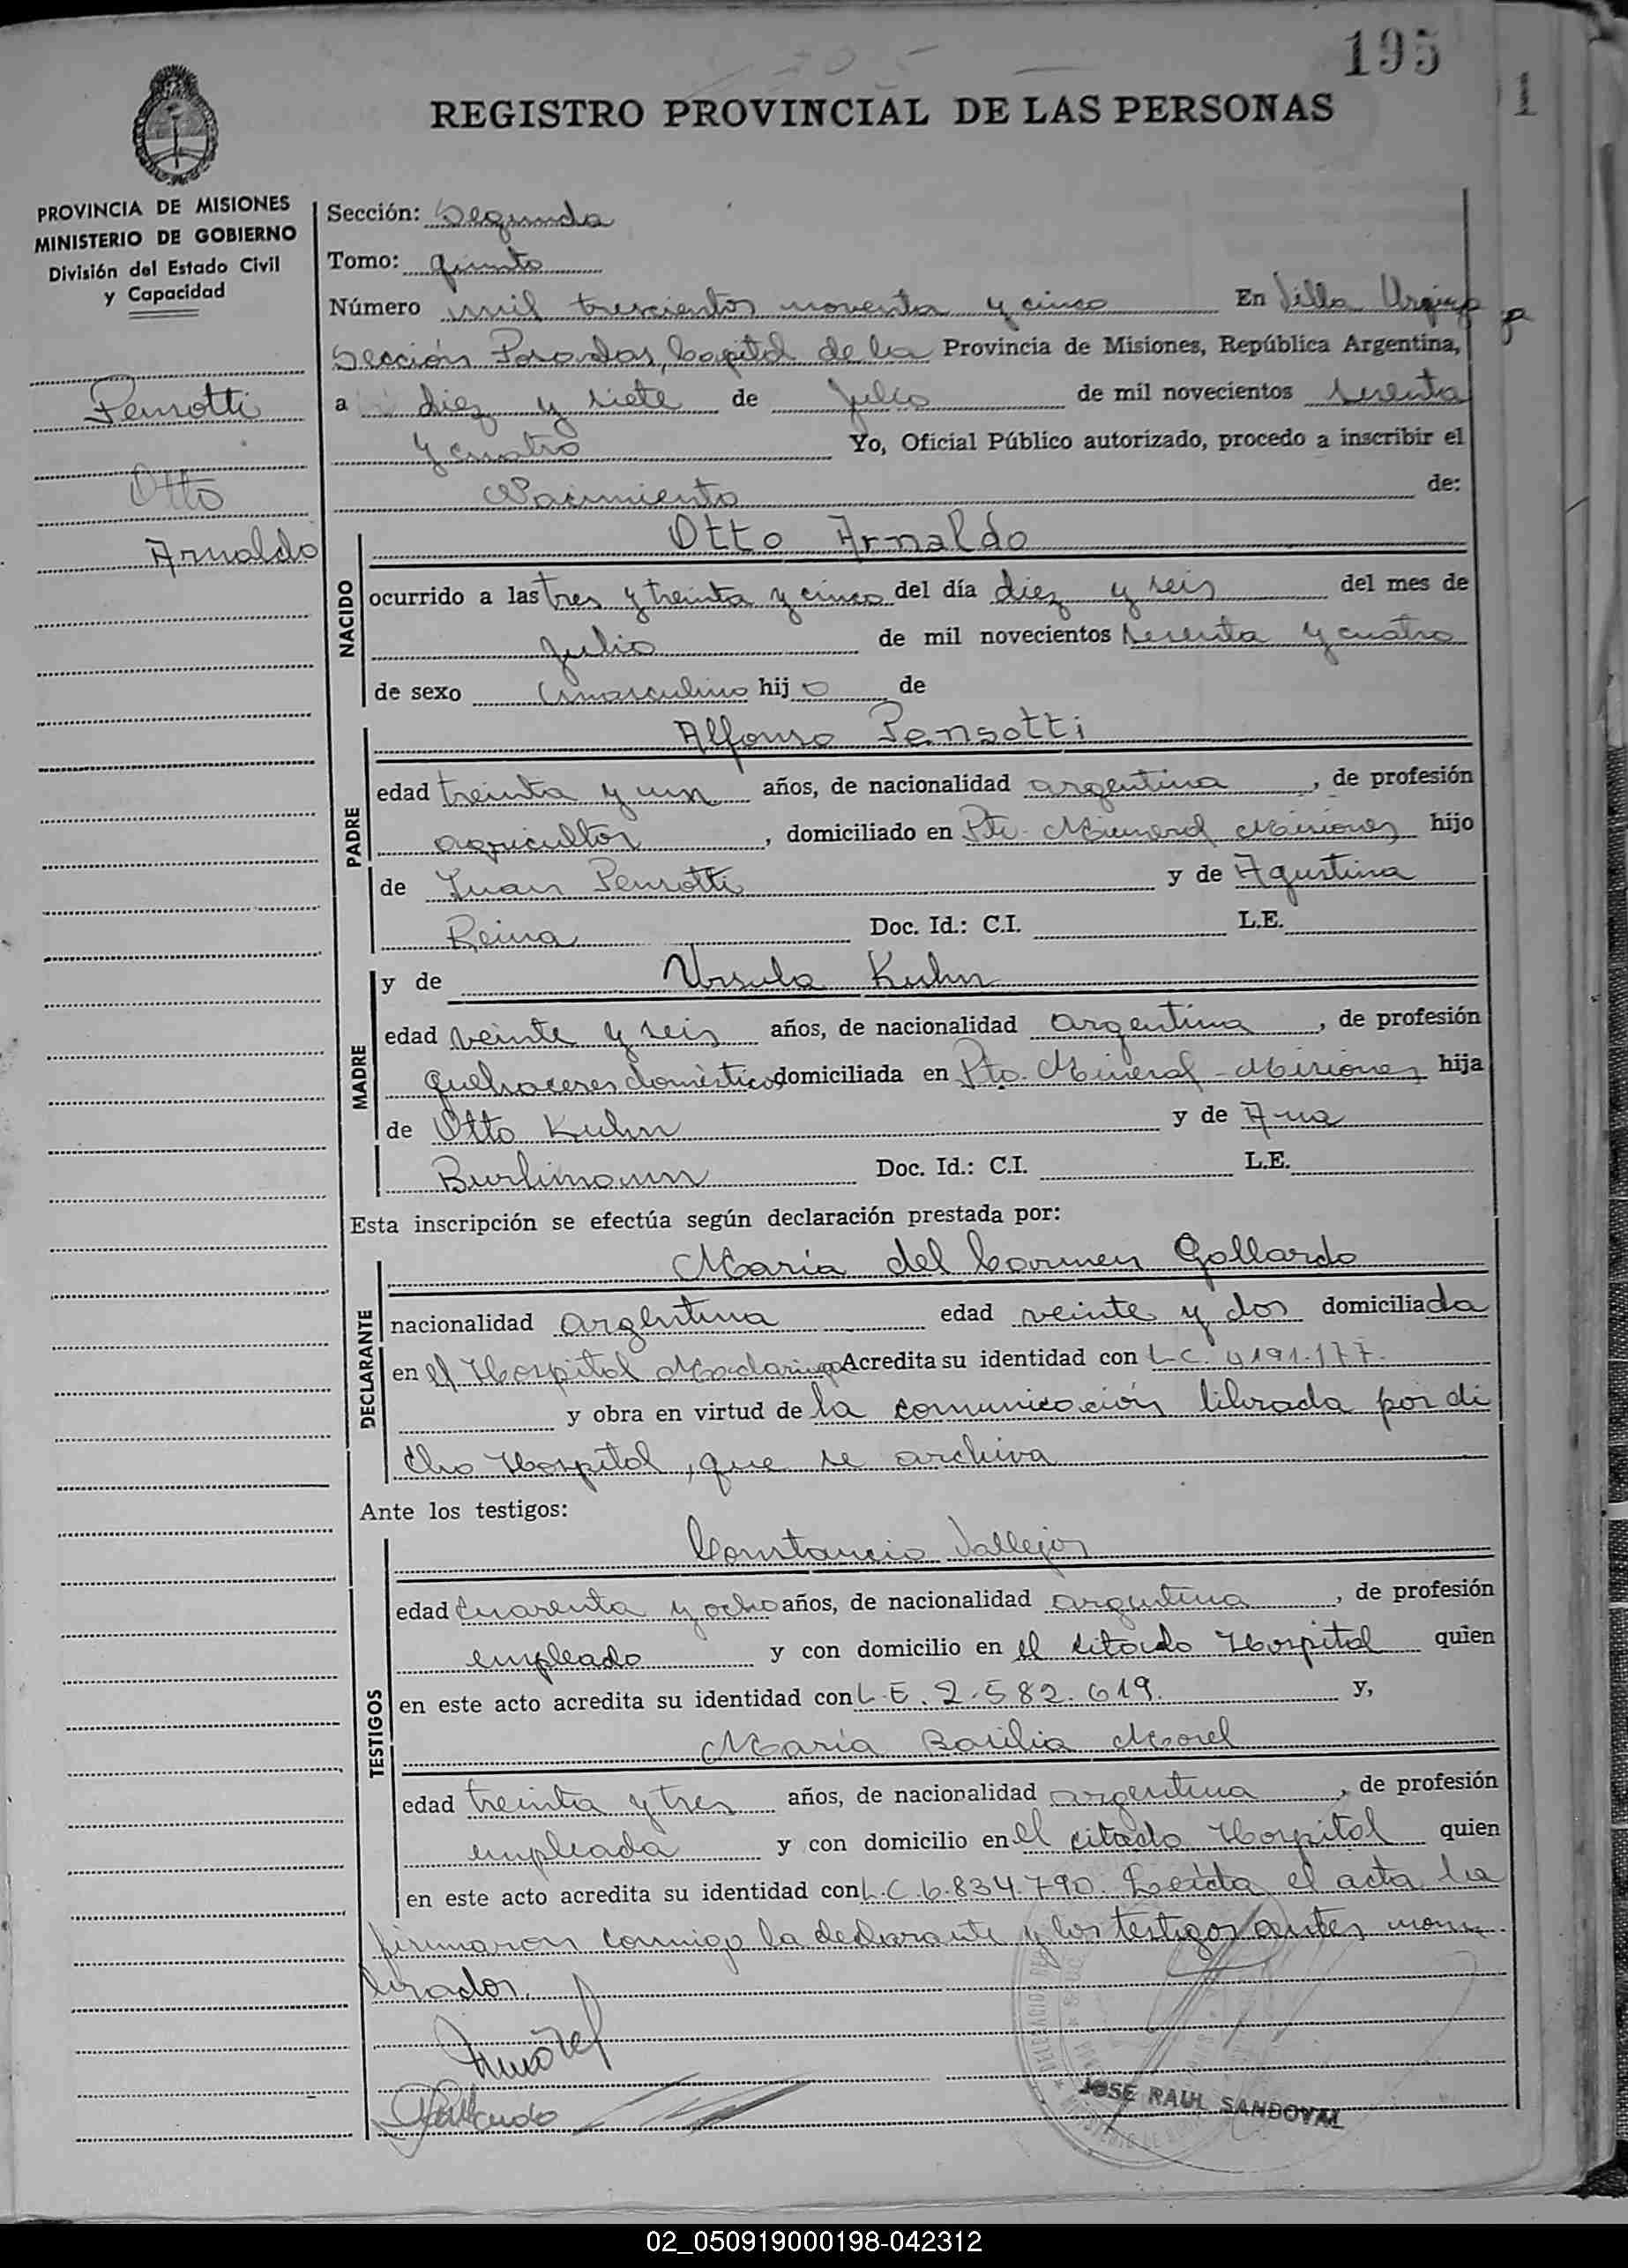 195
1
REGISTRO PROVINCIAL DE LAS PERSONAS
PROVINCIA DE MISIONES
MINISTERIO DE GOBIERNO
División del Estado Civil
y Capacidad
Pensotti
Otto
Arnaldo
Sección: Segunda
Tomo: quinto
Número mil trescientos noventa y cinco En Villa Urquiza
Sección Posadas, Capital de la Provincia de Misiones, República Argentina,
a diez y siete de julio de mil novecientos sesenta
y cuatro Yo, Oficial Público autorizado, procedo a inscribir el
Nacimiento de:
NACIDO
Otto Arnaldo
ocurrido a las tres y treinta y cinco del día diez y seis del mes de
julio de mil novecientos sesenta y cuatro
de sexo masculino hijo de
PADRE
Alfonso Pensotti
edad treinta y un años, de nacionalidad argentina, de profesión
agricultor, domiciliado en Pto. Mineral Misiones hijo
de Juan Pensotti y de Agustina
Reina Doc. Id.: C.I. L.E.
MADRE
y de Ursula Kuhn
edad veinte y seis años, de nacionalidad argentina, de profesión
quehaceres domésticos domiciliada en Pto. Mineral - Misiones hija
de Otto Kuhn y de Ana
Burlimann Doc. Id.: C.I. L.E.
Esta inscripción se efectúa según declaración prestada por:
DECLARANTE
María del Carmen Gallardo
nacionalidad argentina edad veinte y dos domiciliada
en el Hospital Madariaga Acredita su identidad con L.C. 4191.177.
y obra en virtud de la comunicación librada por di
cho Hospital, que se archiva
Ante los testigos:
TESTIGOS
Constancio Vallejos
edad cuarenta y ocho años, de nacionalidad argentina, de profesión
empleado y con domicilio en el citado Hospital quien
en este acto acredita su identidad con L.E. 2.582.619. y,
María Basilia Morel
edad treinta y tres años, de nacionalidad argentina, de profesión
empleada y con domicilio en el citado Hospital quien
en este acto acredita su identidad con L.C. 6.834.790. Leída el acta la
firmaron conmigo la declarante y los testigos antes nom
brados.
JOSE RAUL SANDOVAL
02_050919000198-042312